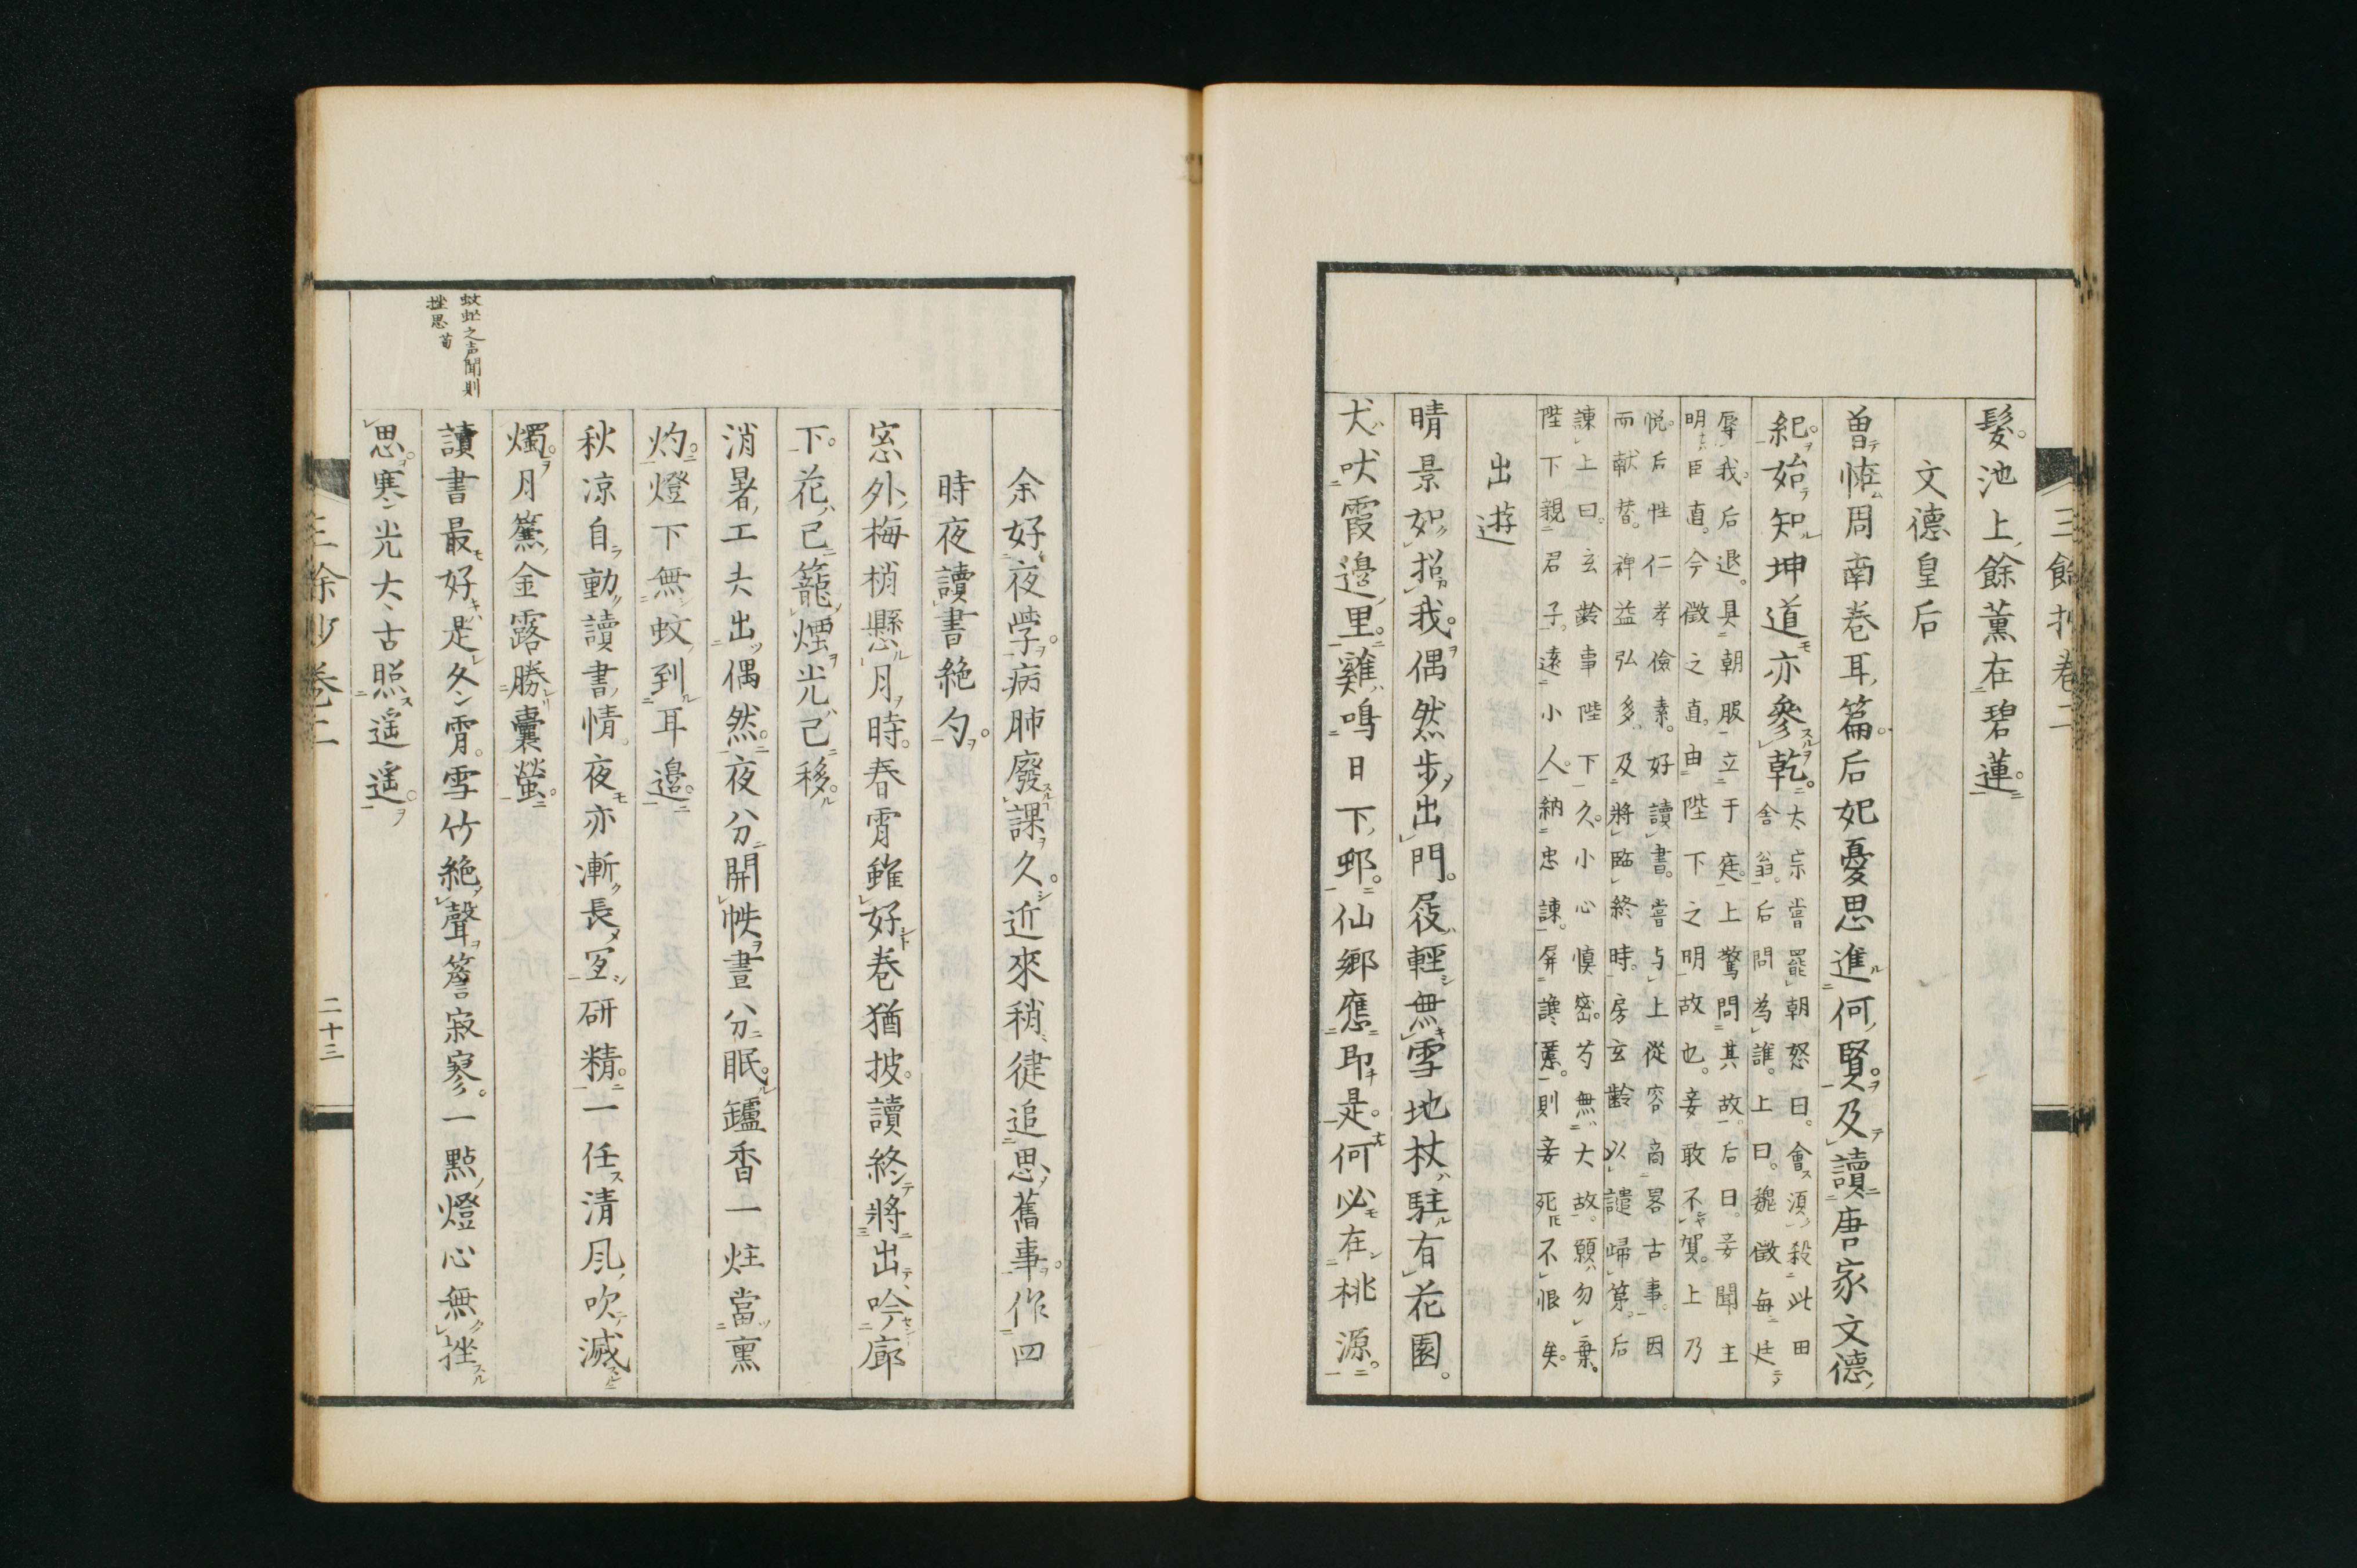 三餘抄卷二
髮池上餘薰在碧蓮
文德皇后
曽恠周南卷耳篇后妃憂思進何賢及讀唐家文德
紀始知坤道亦參乾
太宗嘗罷朝怒曰會須殺此田
舍翁后問為誰上曰魏徵每廷
辱我后退具朝服立于庭上驚問其故后曰妾聞主
明臣直今徵之直由陛下之明故也妾敢不賀上乃
悦后性仁孝儉素好讀書嘗与上從容商畧古事因
而献替裨益弘多及將臨終時房玄齡以譴歸第后
諫上曰玄齡事陛下久小心慎密苟無大故願勿棄
陛下親君子遠小人納忠諫屏讒慝則妾死不恨矣
出遊
晴景如招我偶然步出門屐輕無雪地杖駐有花園
犬吠霞邊里雞鳴日下邨仙鄉應即是何必在桃源
余好夜學病肺廢課久近來稍徤追思舊事作四
時夜讀書絶句
窓外梅梢懸月時春霄雖好卷猶披讀終將出吟廊
下花已籠煙光已移
消暑工夫出偶然夜分開帙晝分眠鑪香一炷當熏
灼燈下無蚊到耳邊
秋凉自動讀書情夜亦漸長冝研精一任清風吹滅
燭月簾金露勝囊螢
蚊虻之声聞則
挫思荀
讀書最好是冬霄雪竹絶聲簷寂寥一點燈心無挫
思寒光大古照遥遥
三餘抄卷二
二十三